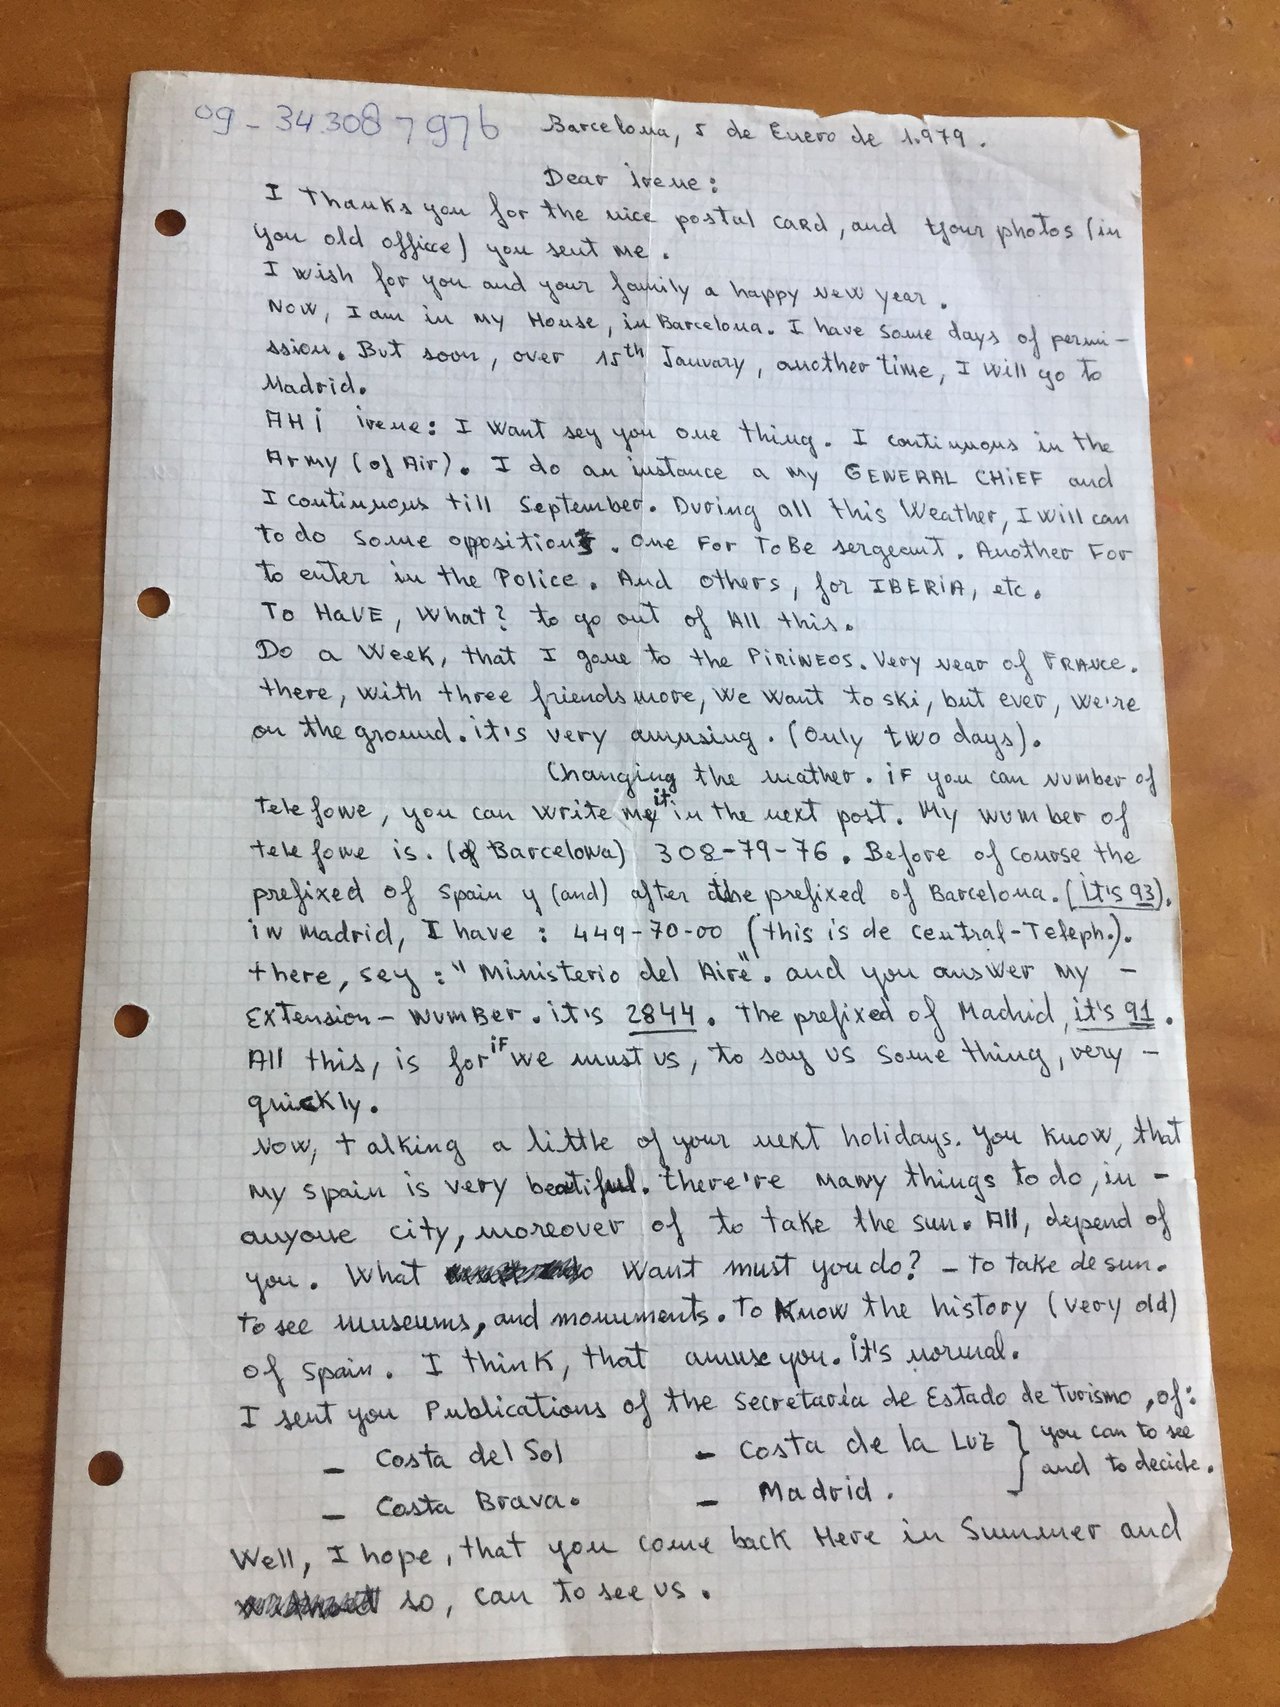 09-34 308 7976
Barcelona, 5 de Enero de 1.979.
Dear irene:
I Thanks you for the nice postal card, and your photos (in
you old office) you sent me.
I wish for you and your family a happy new year.
Now, I am in my House, in Barcelona. I have some days of permi-
ssion. But soon, over 15th January, another time, I will go to
Madrid.
AH¡ irene: I want sey you one thing. I continuous in the
Army (of Air). I do an instance a my GENERAL CHIEF and
I continuous till September. During all this Weather, I will can
to do some oppositions. One For To Be sergeant. Another For
to enter in the Police. And others, for IBERIA, etc.
To HaVE, What? to go out of All this.
Do a Week, that I gone to the PiRiNEOS. Very near of FRANCE.
there, with three friends more, we want to ski, but ever, we're
on the ground. it's very amusing. (Only two days).
Changing the mather. iF you can number of
telefone, you can write me it in the next post. My number of
telefone is. (of Barcelona) 308-79-76. Before of course the
prefixed of Spain y (and) after the prefixed of Barcelona. (it's 93).
in Madrid, I have: 449-70-00 (this is de Central-Teleph.).
there, sey: "Ministerio del Aire". and you answer my -
Extension-number. it's 2844. the prefixed of Madrid, it's 91.
All this, is for iF we must us, to say us some thing, very -
quickly.
Now, talking a little of your next holidays. You know, that
my spain is very beatiful. there're many things to do, in -
anyone city, moreover of to take the sun. All, depend of
you. What want must you do? - to take de sun.
to see museums, and monuments. to Know the history (very old)
of Spain. I think, that amuse you. it's normal.
I sent you Publications of the Secretaría de Estado de Turismo, of:
- Costa del Sol - Costa de la Luz } you can to see
- Costa Brava. - Madrid. and to decide.
Well, I hope, that you come back Here in Summer and
so, can to see us.